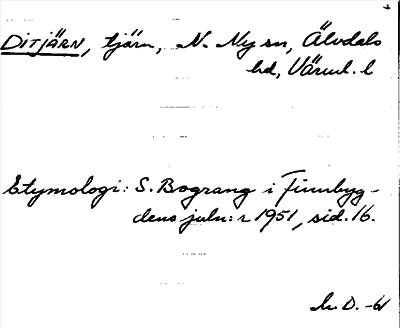 DITJÄRN, tjärn, N. Ny sn, Älvdals
hd, Värml. l
Etymologi: S. Bograng i Finnbyg-
dens juln:r 1951, sid. 16.
D. -61